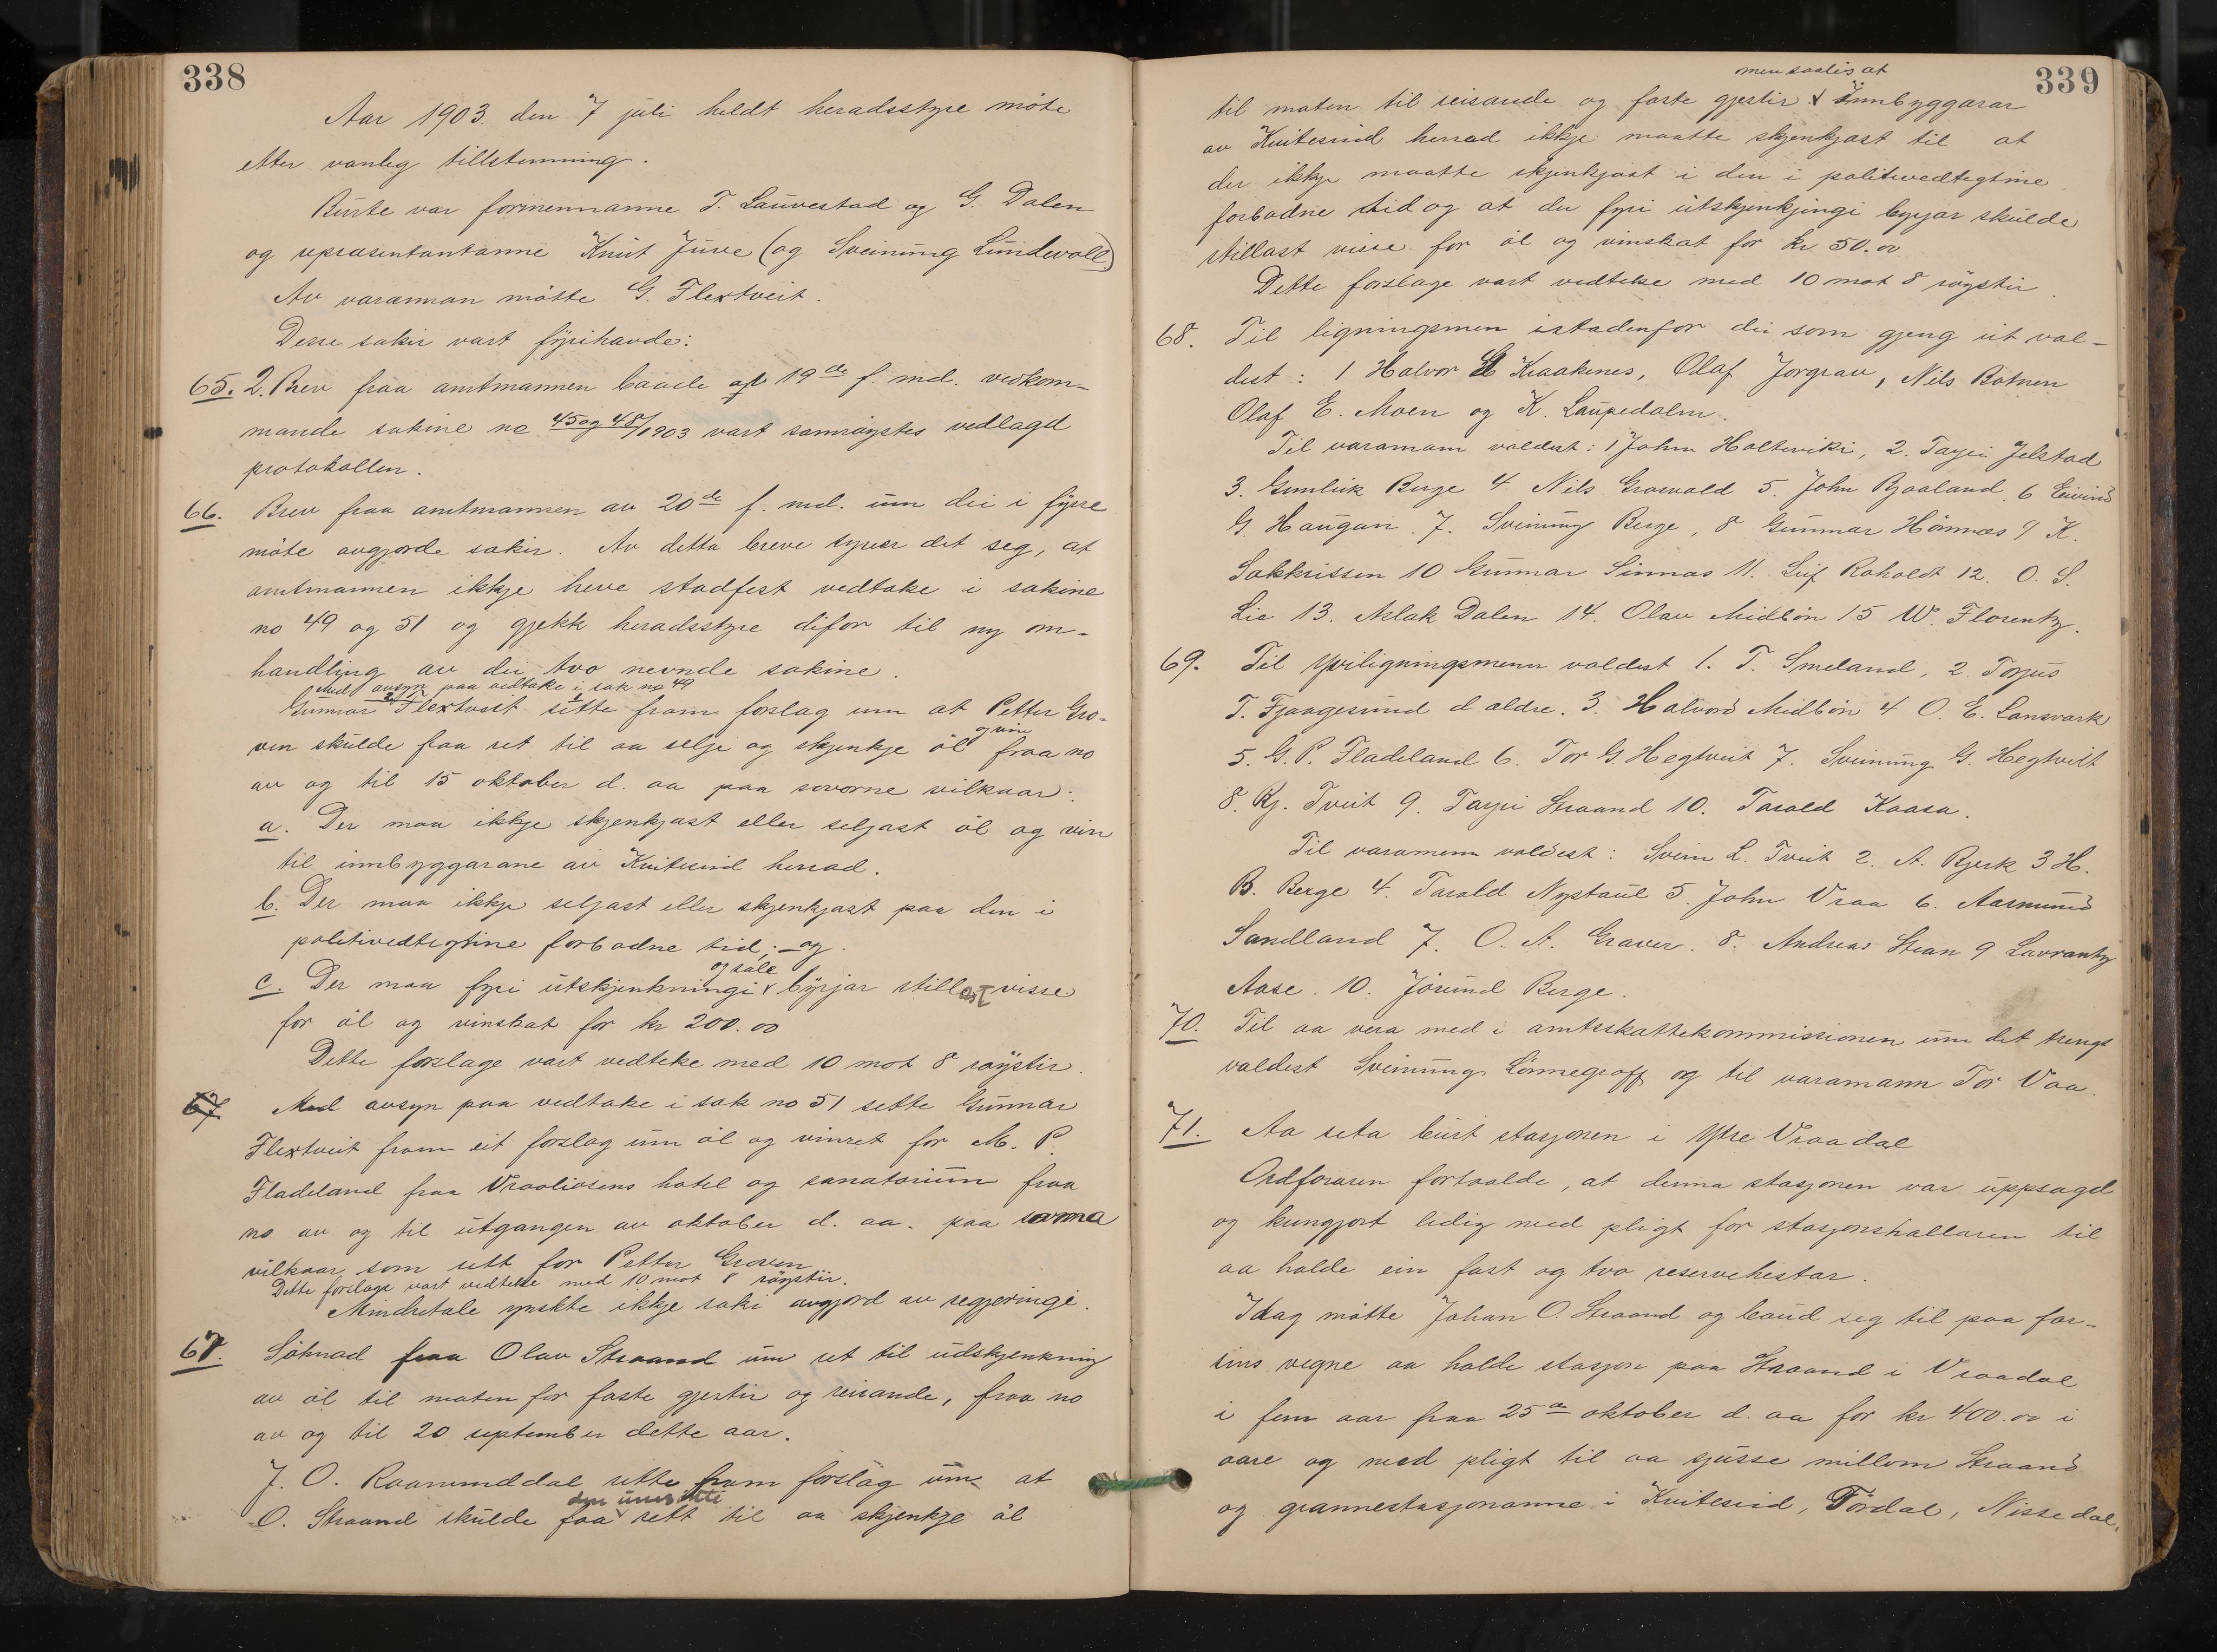 338
Aar 1903 den 7 juli heldt heradsstyre möte
etter vanleg tillstemning.
Burte var formennanne T. Lauvestad og G. Dalen
og representantanne Knut Juve (og Sveinung Lundevall)
Av varamman mötte G. Flextveit.
Desse sakir vart fyrihavde:
65. 2. Brev fraa amtmannen baade af 19de f. md. vedkom-
mande sakine no 45 og 48/1903 vart samröystes vedlagd
protokollen.
66. Brev fraa amtmannen av 20de f. md. um dei i fyrre
möte avgjorde sakir. Av detta breve syner det seg, at
amtmannen ikkje heve stadfest vedtake i sakine
no 49 og 51 og gjekk heradsstyre difor til ny om-
handling av dei tvo nevnde sakine.
Med avsyn paa vedtake i sak no 49
Gunnar Flextveit sette fram forslag um at Petter Gro-
og vin
ven skulde faa ret til aa selje og skjenkje öl fraa no
av og til 15 oktober d. aa paa sovorne vilkaar:
a. Der maa ikkje skjenkjast eller seljast öl og vin
til innbyggarane av Kviteseid herad.
b. Der maa ikkje seljast eller skjenkjast paa den i
politivedtegtine forbodne tid; og
og sale
c. Der maa fyri utskjenkningi byrjar stillast visse
for öl og vinskat for kr 200.00
Dette forslage vart vedteke med 10 mot 8 röystir.
67 Med avsyn paa vedtake i sak no 51 sette Gunnar
Flextveit fram eit forslag um öl og vinret for M. P.
Fladeland fraa Vraaliosens hotel og sanatorium fraa
no av og til utgangen av oktober d. aa. paa samma
vilkaar som sett for Petter Groven
Dette forslage vart vedteke med 10 mot 8 röystir.
Mindretale ynskte ikkje saki avgjord av regjeringi.
67. Söknad fraa Olav Straand um ret til udskjenkning
av öl til maten for faste gjestir og reisande, fraa no
av og til 20 september dette aar.
J. O. Raamunddal sette fram forslag um at
den umsökte
O. Straand skulde faa rett til aa skjenkje öl
339
men soleis at
til maten til reisande og faste gjestir Innbyggarar
av Kviteseid herred ikkje maatte skjenkjast til at
der ikkje maatte skjenkjast i den i politivedtegtine
forbodne tid og at der fyri utskjenkjingi byrjar skulde
stillast visse for öl og vinskat for kr 50.00
Dette forslage vart vedteke med 10 mot 8 röystir.
68. Til ligningsmen istadenfor dei som gjeng ut val-
dest: 1 Halvor Kraakenes, Olaf Jorgrav, Nils Botnen
Olaf E. Moen og K. Laupedalen.
Til varamann valdest: 1 John Holteviki, 2. Tarjei Jelstad
3. Gunleik Berge 4 Nils Groswold 5. John Bjaaland 6 Eivind
G. Haugan. 7. Sveinung Berge, 8 Gunnar Hömnæs 9 K.
Sakkrissen 10 Gunnar Sinnas 11. Leif Roholdt 12. O. S.
Lie 13. Aslak Dalen 14. Olav Midbön 15 W. Florentz.
69. Til yviligningsmenn valdest 1. T. Smeland, 2. Torjus
T. Fjaagesund d ældre. 3. Halvord Midbön 4 O. E. Lansverk
5. G. P. Fladeland 6. Tor G. Hegtveit 7. Sveinung G. Hegtveit
8. Kj. Tveit 9. Tarjei Straand 10. Tarald Kaasa.
Til varamenn valdest: Svein L. Tveit 2. A. Bjerk 3 H.
B. Berge 4. Tarald Nystaul 5. John Vraa 6. Aasmund
Sandland 7. O. A. Graver. 8. Andreas Stran 9 Lavrantz
Aase. 10. Jörund Berge.
70. Til aa vera med i amtsskattekommissionen um det trengs
valdest Sveinung Lönnegroff og til varamann Tor Vaa.
71. Aa seta burt stasjonen i Ytre Vraadal
Ordföraren fortalde, at denna stasjonen var uppsagd
og kungjort ledig med pligt for stasjonshallaren til
aa halde ein fast og tvo reservehestar.
Idag mötte Johan O. Straand og baud seg til paa far-
sins vegne aa halde stasjon paa Straand i Vraadal
i fem aar fraa 25de oktober d. aa for kr 400.00 i
aare og med pligt til aa sjusse millom Straand
og grannestasjonanne i Kviteseid, Tördal, Nissedal,